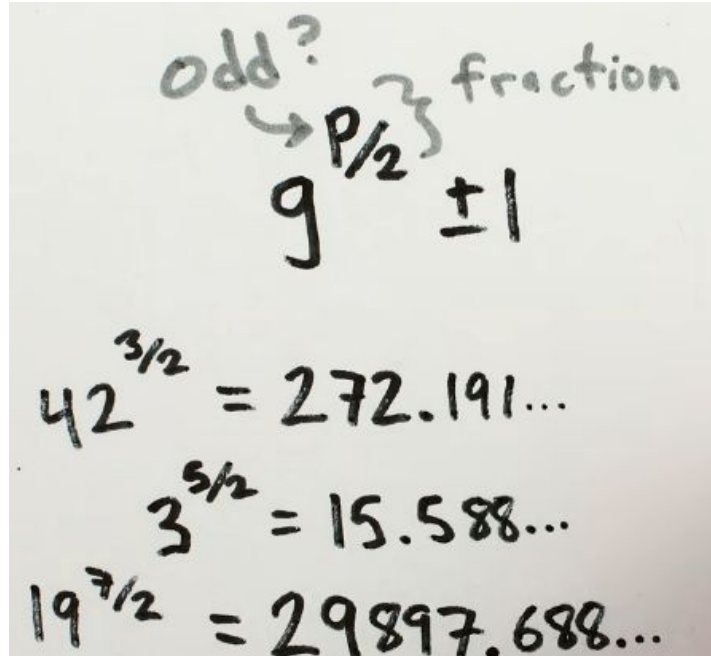 odd? fraction
g^(p/2) ±1
42^(3/2) = 272.191...
3^(5/2) = 15.588...
19^(7/2) = 29897.688...